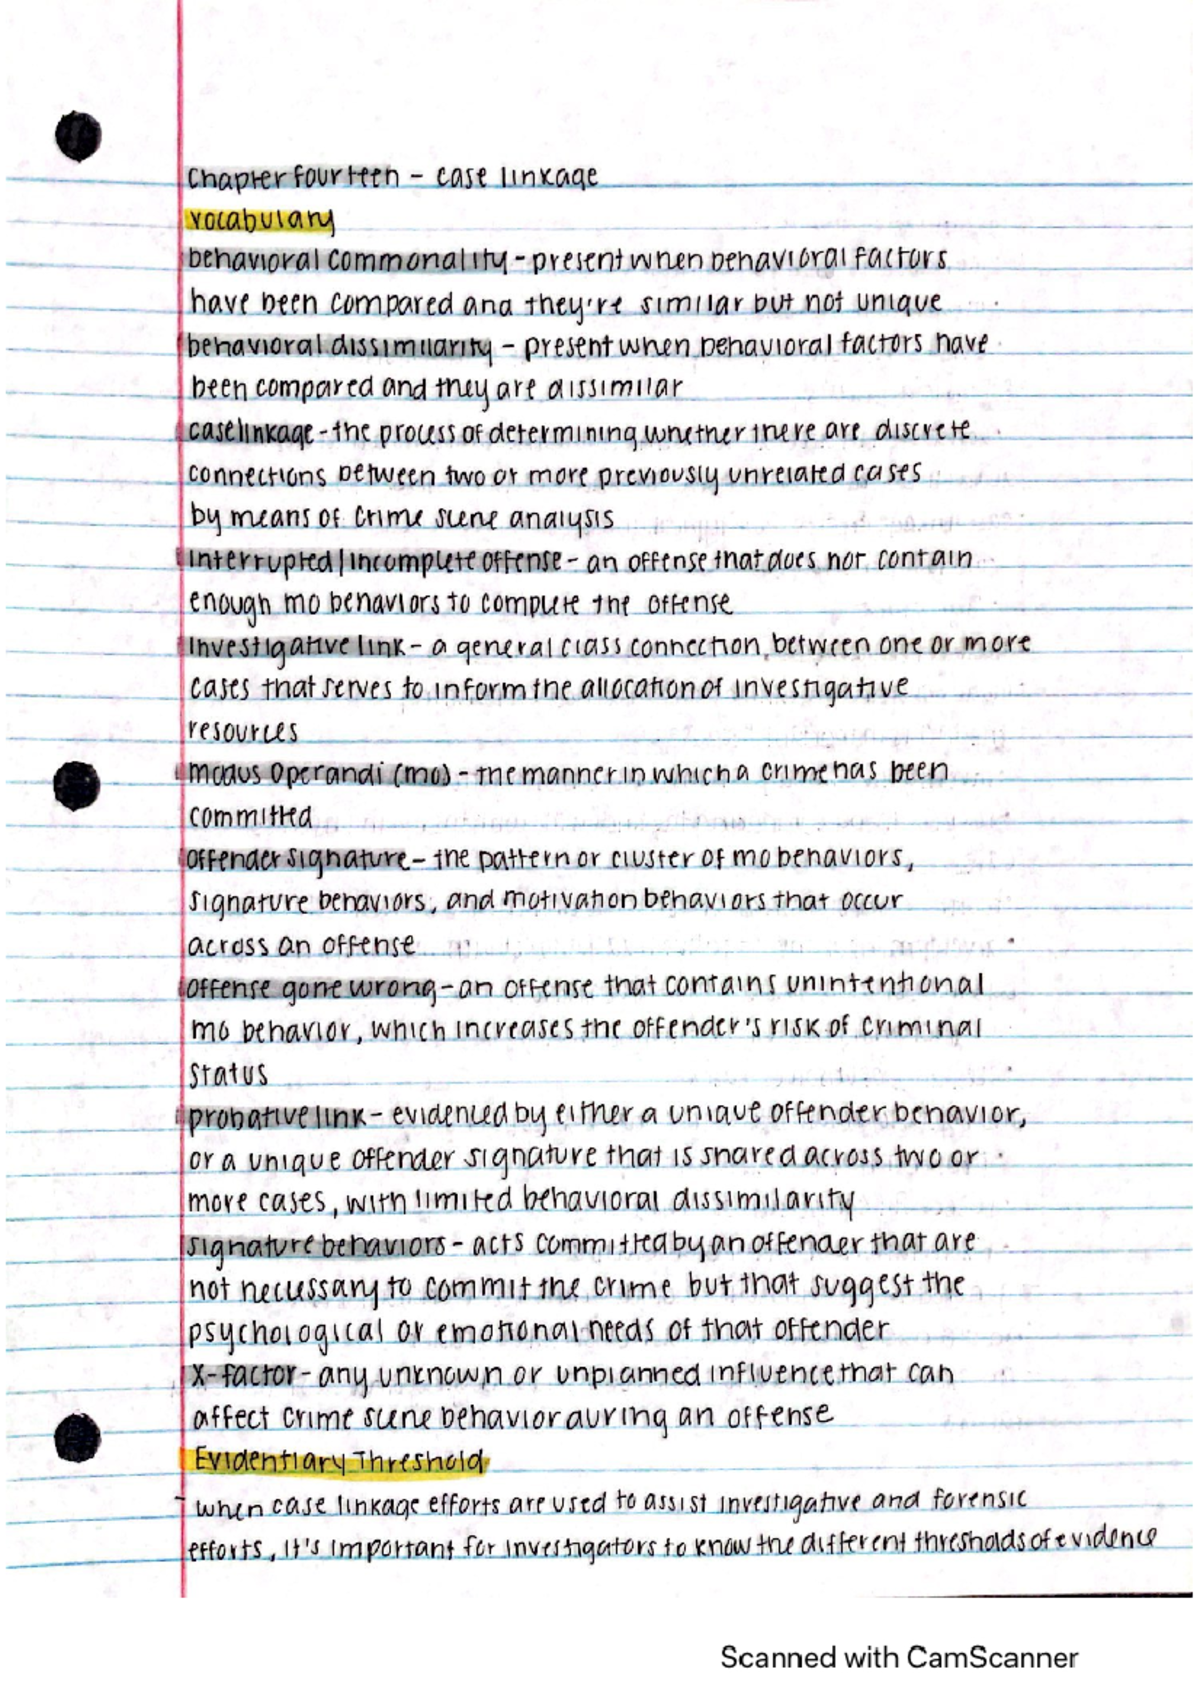 Chapter fourteen - case linkage
vocabulary
behavioral commonality - present when behavioral factors
have been compared and they're similar but not unique
behavioral dissimilarity - present when behavioral factors have
been compared and they are dissimilar
case linkage - the process of determining whether there are discrete
connections between two or more previously unrelated cases
by means of crime scene analysis
interrupted/incomplete offense - an offense that does not contain
enough mo behaviors to complete the offense
investigative link - a general class connection between one or more
cases that serves to inform the allocation of investigative
resources
modus operandi (mo) - the manner in which a crime has been
committed
offender signature - the pattern or cluster of mo behaviors,
signature behaviors, and motivation behaviors that occur
across an offense
offense gone wrong - an offense that contains unintentional
mo behavior, which increases the offender's risk of criminal
status
probative link - evidenced by either a unique offender behavior,
or a unique offender signature that is shared across two or
more cases, with limited behavioral dissimilarity
signature behaviors - acts committed by an offender that are
not necessary to commit the crime but that suggest the
psychological or emotional needs of that offender
X-factor - any unknown or unplanned influence that can
affect crime scene behavior during an offense
Evidentiary Threshold
- when case linkage efforts are used to assist investigative and forensic
efforts, it's important for investigators to know the different thresholds of evidence
Scanned with CamScanner